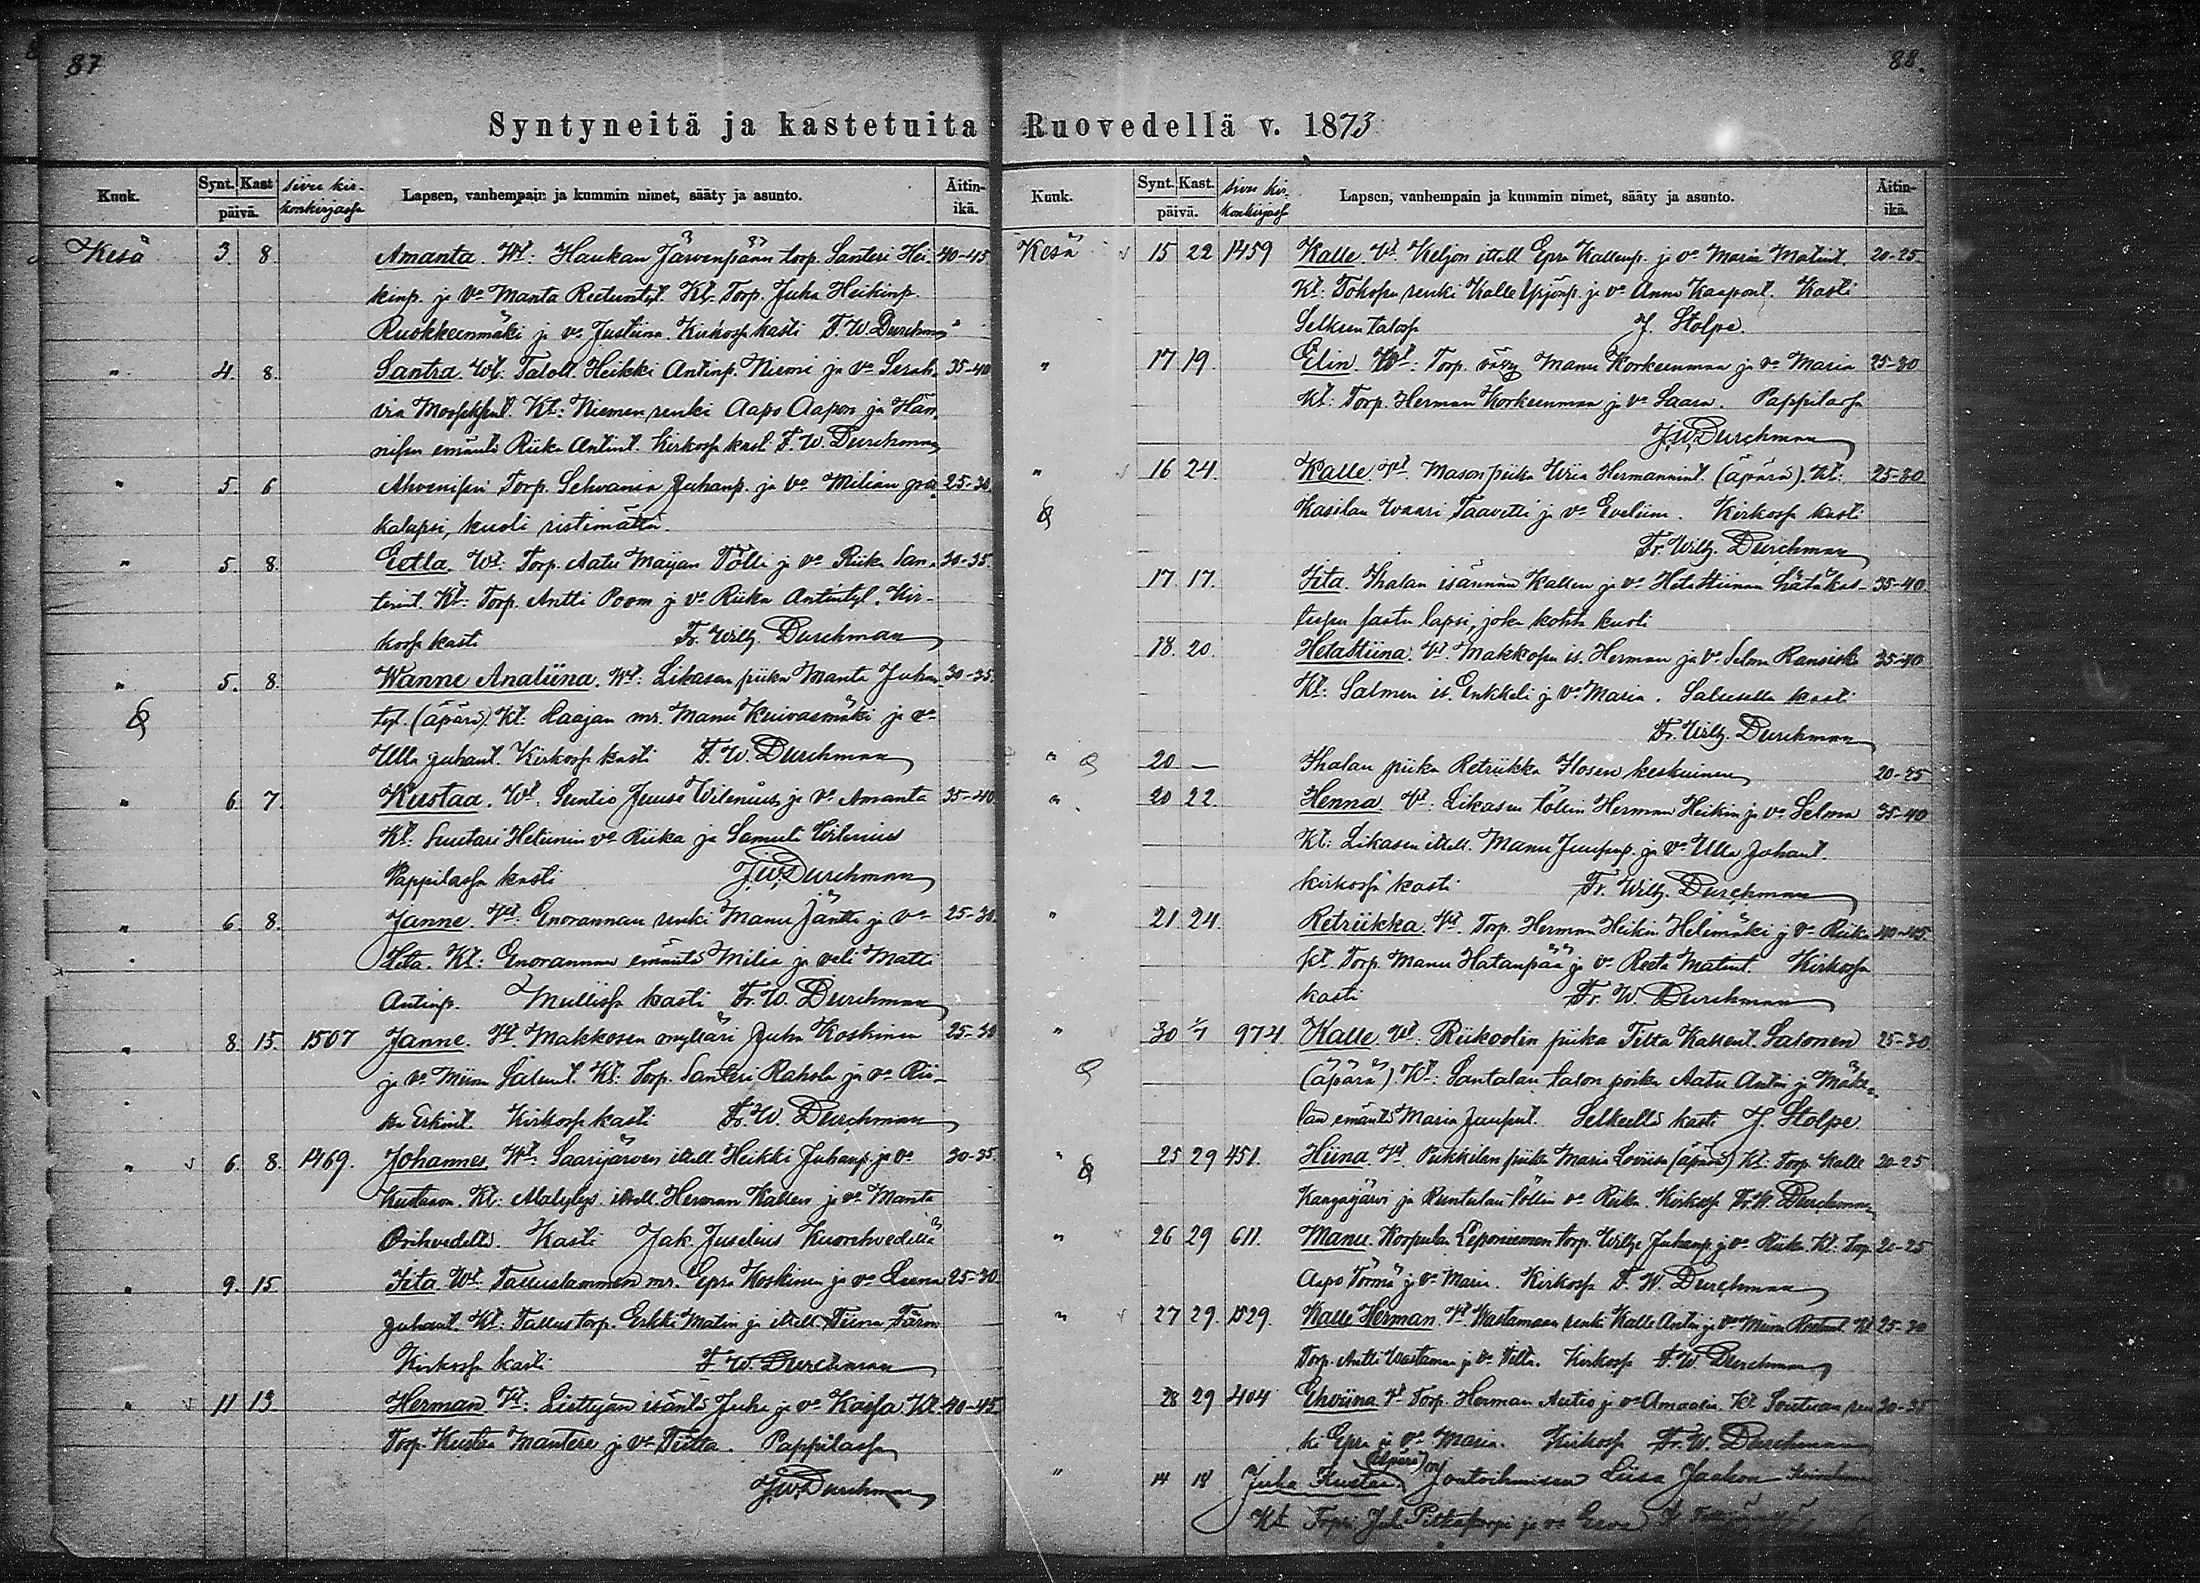 87
Syntyneitä ja kastetuita
Kuuk. Synt. Kast päivä. sivu kirkonkirjassa Lapsen, vanhempain ja kummin nimet, sääty ja asunto. Äitin-ikä.
Kesä 3. 8. Amanta. Wt: Haukan Järvenpään torp. Santeri Hei- 40-45
kinp. ja vo Manta Reetuntyt. Kt: Torp. Juha Heikinp.
Ruokkeenmäki ja vo Justiina. Kirkossa kasti F. W. Durchman
" 4. 8. Santra. Wt. Taloll. Heikki Antinp. Niemi ja vo Serah- 35-40
via Kt: Niemen renki Aapo Aapon ja Hän-
nisen emäntä Riika Antint. Kirkossa kast. F. W. Durchman
" 5. 6 Torp. Juhanp. ja vo Milian poi- 25-30
kalapsi, kuoli ristimättä.
" 5. 8. Eetla. Wt. Torp. Aatu Maijan Tölli ja vo Riika San- 30-35
terint. Kt: Torp. Antti Poom ja vo Riika Antintyt. Kir-
kossa kasti Fr. Wilh. Durchman
" 5. 8. Wanne Analiina. Wt: Likasen piika Manta Juhan- 30-35
tyt. (äpärä). Kt: Haajan mr. Manu Kuivasmäki ja vo
Ulla Juhant. Kirkossa kasti F. W. Durchman
" 6. 7. Kustaa. Wt. Suntio Juuse Wilenius ja vo Amanta 35-40
Kt: Suutari Heliinin vo Riika ja Samuli Wilenius
Pappilassa kasti F.W. Durchman
" 6. 8. Janne. Wt: Enorannan renki Manu Jäntti ja vo 25-30
Heta. Kt: Enorannan emäntä Milia ja veli Matti
Antinp. kasti Fr. W. Durchman
" 8. 15. 1507 Janne. Wt. Makkosen mylläri Juha Koskinen 25-30
ja vo Miina Salent. Kt: Torp. Santeri Rahola ja vo Rii-
ka Erkint. Kirkossa kasti Fr. W. Durchman
" 6. 8. 1469. Johannes. Wt: Saarijärven itsell. Heikki Juhanp. ja vo 30-35
Kustaava. Kt: itsell. Herman Kallen ja vo Manta
Kasti Jak. Juselius
" 9. 15. Iita. Wt. Talluslammen mr. Epra Koskinen ja vo Leena 25-30
Juhant. Kt: Tallus torp. Erkki Matin ja itsell. Tiina
Kirkossa kasti F. W. Durchman
" 11 13. Herman. Wt: Liettyän isäntä Juha ja vo Kaisa Kt: 40-45
Torp. Kustaa Mantere ja vo Tiitta. Pappilassa
F.W. Durchman
88.
Ruovedellä v. 1873
Kuuk. Synt. Kast. päivä. sivu kirkonkirjassa Lapsen, vanhempain ja kummin nimet, sääty ja asunto. Äitin-ikä.
Kesä 15 22 1459 Kalle. Wt. Keljon itsell. Epra Kallenp. ja vo Maria Matint. 20-25
Kt: renki Kalle Yrjönp. ja vo Anna Kaapont. Kasti
Selkeen talossa J. Stolpe.
" 17 19. Elin. Wt: Torp. Manu Korkeenmaa ja vo Maria 25-30
Kt: Torp. Herman Korkeenmaa ja vo Saara. Pappilassa
F.W. Durchman
" 16 24. Kalle. Wt. Mason piika Hermannint. (äpärä). Kt: 25-30
Kasilan waari Taavetti ja vo Eveliina. Kirkossa kasti
Fr. Wilh. Durchman
17 17. Iita. Ihalan isännän Kallen ja vo Hetastiinan hätäkas- 35-40
teesen saatu lapsi, joka kohta kuoli
18. 20. Hetastiina. Wt. Makkosen is. Herman ja vo Selma 35-40
Kt: Salmen is. Enkkeli ja vo Maria. kasti
Fr. Wilh. Durchman
" 20 — Ihalan piika Retriikka Ilosen keskuinen 20-25
" 20 22. Henna. Wt: Likasen töllin Herman Heikin ja vo Selma 35-40
Kt: Likasen itsell. Manu ja vo Ulla Johant.
kirkossa kasti Fr. Wilh. Durchman
" 21 24. Retriikka. Wt. Torp. Herman Heikin Helimäki ja vo Riika 40-45
Kt. Torp. Manu Hatanpää ja vo Reeta Matint. Kirkossa
kasti Fr. W. Durchman
" 30 1/7 974 Kalle. Wt: Riikoolin piika Tilta Kallent. Salonen 25-30
(äpärä). Kt: Santalan talon poika Aatu Antin ja Mäke-
län emäntä Maria Selkeellä kasti J. Stolpe
" 25 29 451. Hiina. Wt. Pukkilan piika Maria Loviisa (äpärä) Kt: Torp. Kalle 20-25
Kangasjärvi ja Runtulan töllin vo Riika. Kirkossa Fr. W. Durchman
" 26 29 611. Manu. Korpula Leponiemen torp. Wilhe Juhanp. ja vo Riika. Kt. Torp. 20-25
Aapo Törmä ja vo Maria. Kirkossa F. W. Durchman
" 27 29 1529. Kalle Herman. Wt. Wastamaan renki Kalle Antin ja vo Miina Kt. 25-30
Torp. Antti Wastamaa ja vo Tilta. Kirkossa F. W. Durchman
28 29 404 Eveliina. Wt. Torp. Herman Autio ja vo Amaalia. Kt. ren- 30-35
ki Epra ja vo Maria. Kirkossa Fr. W. Durchman
" 14 18 Juha Kustaa (äpärä) Liisa
Kt. Juh. ja vo Eeva